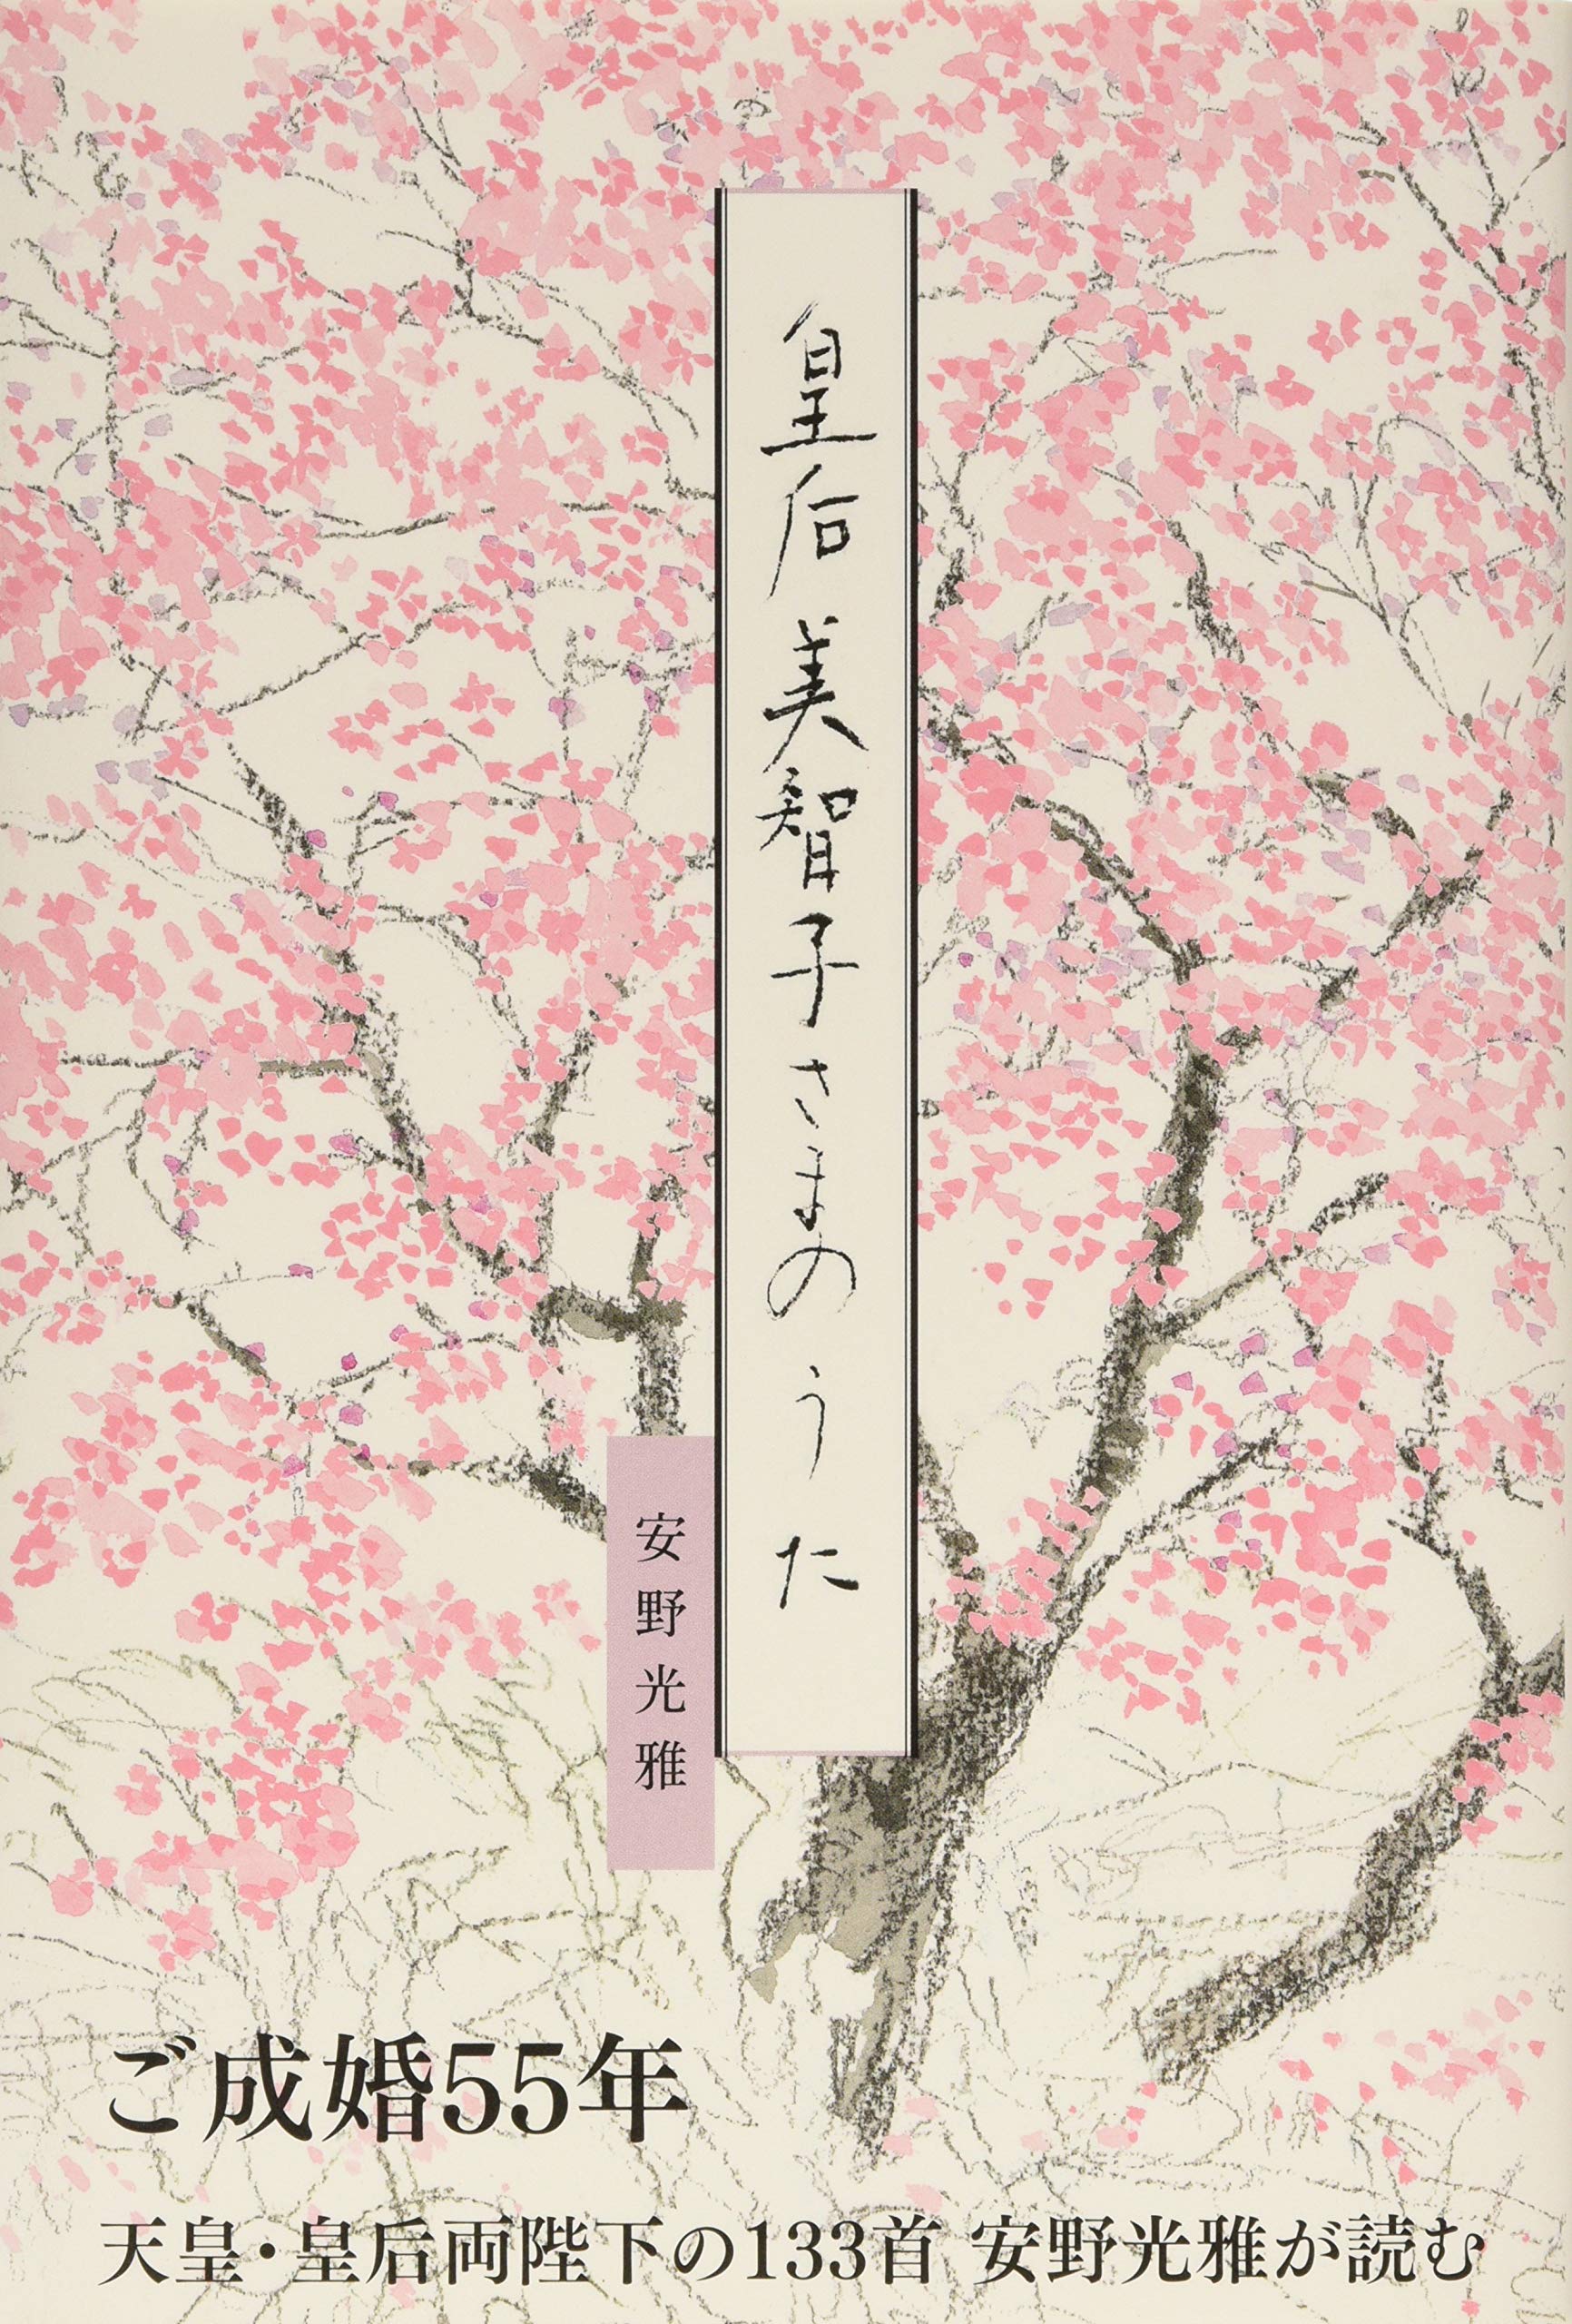 皇后美智子さまのうた
安野光雅
ご成婚55年
天皇・皇后両陛下の133首 安野光雅が読む